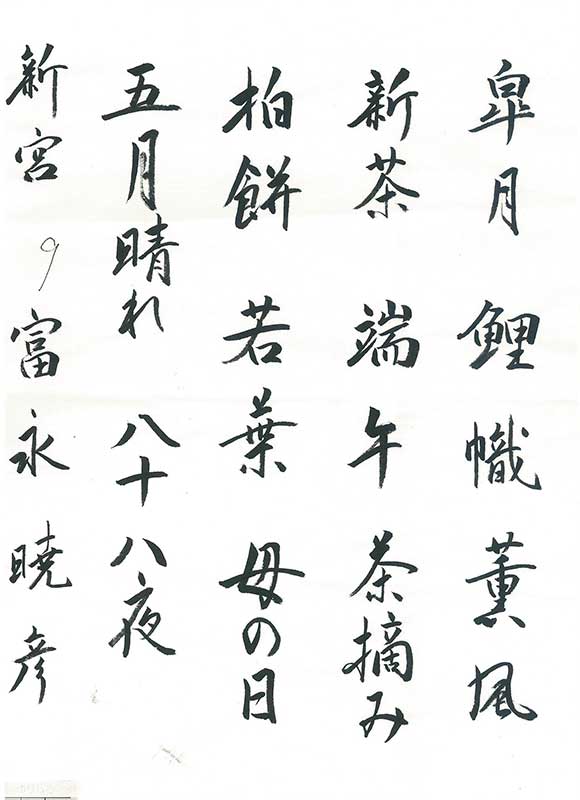 皐月 鯉幟 薫風
新茶 端午 茶摘み
柏餅 若葉 母の日
五月晴れ 八十八夜
新宮 9 富永暁彦